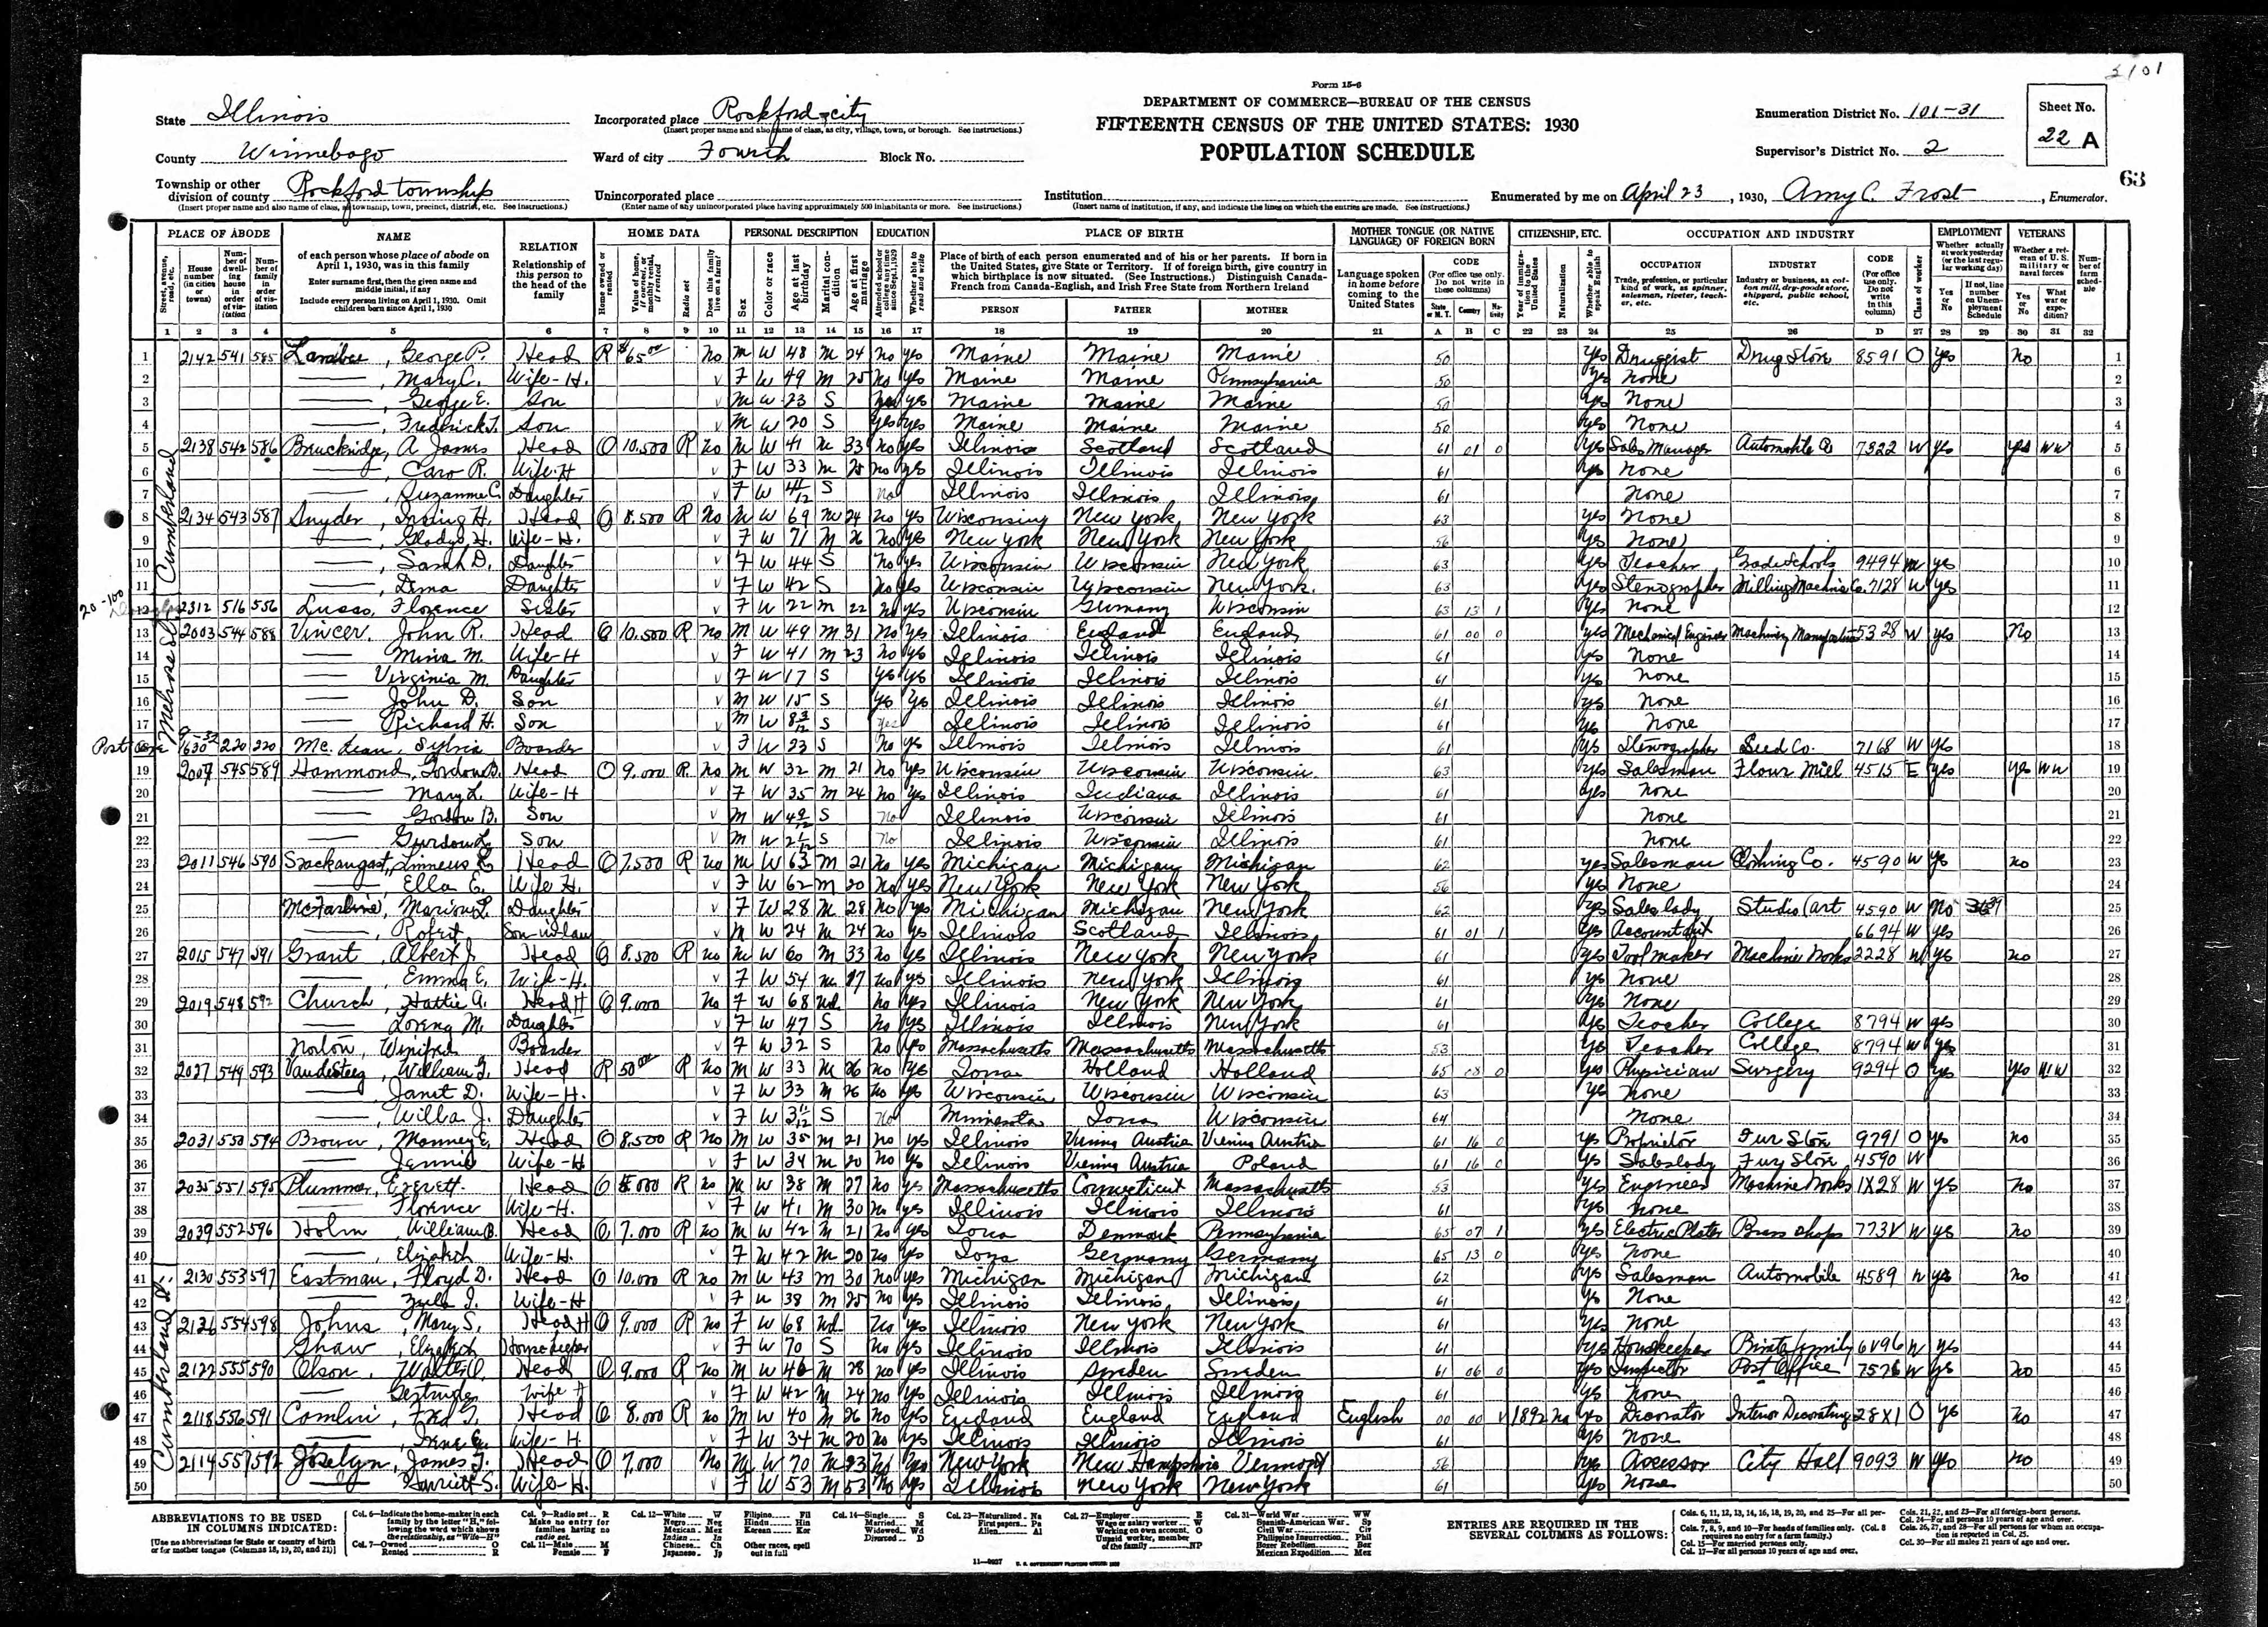 3101
Form 15-6
DEPARTMENT OF COMMERCE—BUREAU OF THE CENSUS
FIFTEENTH CENSUS OF THE UNITED STATES: 1930
POPULATION SCHEDULE
State Illinois
County Winnebago
Township or other division of county Rockford township
(Insert proper name and also name of class, as township, town, precinct, district, etc. See instructions.)
Incorporated place Rockford city
(Insert proper name and also name of class, as city, village, town, or borough. See instructions.)
Ward of city Fourth Block No.
Unincorporated place
(Enter name of any unincorporated place having approximately 500 inhabitants or more. See instructions.)
Institution
(Insert name of institution, if any, and indicate the lines on which the entries are made. See instructions.)
Enumeration District No. 101-31
Supervisor's District No. 2
Sheet No. 22 A
63
Enumerated by me on April 23, 1930, Amy C. Frost, Enumerator.
PLACE OF ABODE NAME RELATION HOME DATA PERSONAL DESCRIPTION EDUCATION PLACE OF BIRTH MOTHER TONGUE (OR NATIVE LANGUAGE) OF FOREIGN BORN CITIZENSHIP, ETC. OCCUPATION AND INDUSTRY EMPLOYMENT VETERANS
of each person whose place of abode on April 1, 1930, was in this family
Enter surname first, then the given name and middle initial, if any
Include every person living on April 1, 1930. Omit children born since April 1, 1930
Relationship of this person to the head of the family
Place of birth of each person enumerated and of his or her parents. If born in the United States, give State or Territory. If of foreign birth, give country in which birthplace is now situated. (See Instructions.) Distinguish Canada-French from Canada-English, and Irish Free State from Northern Ireland
PERSON FATHER MOTHER
Language spoken in home before coming to the United States
1 2 3 4 5 6 7 8 9 10 11 12 13 14 15 16 17 18 19 20 21 A B C 22 23 24 25 26 D 27 28 29 30 31 32
Cumberland
Melrose St.
Cumberland St.
1 2142 541 585 George P. Head R $65 00 No M W 48 M 24 No yes Maine Maine Maine 50 Yes Druggist Drug Store 8591 O Yes No
2 Mary C. Wife-H. F W 49 M 25 No yes Maine Maine Pennsylvania 50 Yes None
3 George E. Son M W 23 S yes Maine Maine Maine 50 Yes None
4 Son M W 20 S Yes Yes Maine Maine Maine 50 Yes None
5 2138 542 586 A James Head O 10,500 R No M W 41 M 33 No yes Illinois Scotland Scotland 61 01 0 Yes Sales Manager Automobile Co 7322 W Yes Yes WW
6 Caro R. Wife-H F W 33 M No yes Illinois Illinois Illinois 61 Yes None
7 Suzanne C. Daughter F W S No Illinois Illinois Illinois 61 None
8 2134 543 587 Snyder, Irving H. Head O 8,500 R No M W 69 M 24 No yes Wisconsin New York New York 63 yes None
9 Gladys H. Wife-H. F W 71 M 26 No yes New York New York New York 56 Yes None
10 Sarah D. Daughter F W 44 S No yes Wisconsin Wisconsin New York 63 Yes Teacher Grade Schools 9494 W yes
11 Daughter F W 42 S No yes Wisconsin Wisconsin New York 63 Yes Stenographer Milling Machine Co. 7128 W Yes
12 2312 516 556 Florence Sister F W 22 M 22 No yes Wisconsin Germany Wisconsin 63 13 1 Yes None
13 2003 544 588 Vincer, John R. Head O 10,500 R No M W 49 M 31 No Yes Illinois England England 61 00 0 yes Mechanical Engineer Machinery 5328 W yes No
14 Mina M. Wife-H F W 41 M 23 No yes Illinois Illinois Illinois 61 Yes None
15 Virginia M. Daughter F W 17 S yes yes Illinois Illinois Illinois 61 Yes None
16 John D. Son M W 15 S yes yes Illinois Illinois Illinois 61 yes None
17 Richard H. Son M W S Yes Illinois Illinois Illinois 61 Yes None
18 1630 220 220 Mc. Lean, Sylvia Boarder F W 23 S No yes Illinois Illinois Illinois 61 Yes Stenographer Seed Co. 7168 W yes
19 2007 545 589 Hammond, Gordon B. Head O 9,000 R No M W 32 M 21 No yes Wisconsin Wisconsin Wisconsin 63 Yes Salesman Flour Mill 4515 E yes yes WW
20 Mary L. Wife-H F W 35 M 24 No yes Illinois Indiana Illinois 61 yes None
21 Gordon B. Son M W S No Illinois Wisconsin Illinois 61 None
22 Son M W S No Illinois Wisconsin Illinois 61 None
23 2011 546 590 Linneus Head O 7,500 R No M W 63 M 21 No yes Michigan Michigan Michigan 62 yes Salesman Clothing Co. 4590 W yes no
24 Ella E. Wife H. F W 62 M 20 No yes New York New York New York 56 Yes None
25 Marion L. Daughter F W 28 M 28 No Yes Michigan Michigan New York 62 Yes Saleslady Studio (art 4590 W No
26 Robert Son-in-law M W 24 M 24 No yes Illinois Scotland Illinois 61 01 1 Yes Accountant 6694 W yes
27 2015 547 591 Grant, Albert J. Head O 8,500 R No M W 60 M 33 No yes Illinois New York New York 61 yes Tool maker Machine Works 2228 W yes no
28 Emma E. Wife-H. F W 54 M No yes Illinois New York Illinois 61 yes None
29 2019 548 592 Church, Hattie A. Head H O 9,000 No F W 68 Wd No yes Illinois New York New York 61 yes None
30 Lorena M. Daughter F W 47 S No yes Illinois Illinois New York 61 Yes Teacher College 8794 W yes
31 Norton, Winifred Boarder F W 32 S No yes Massachusetts Massachusetts Massachusetts 53 Yes Teacher College 8794 W yes
32 2027 549 593 William Head R 50 00 R No M W 33 M 26 No yes Iowa Holland Holland 65 08 0 Yes Physician Surgery 9294 O yes Yes WW
33 Janet D. Wife-H. F W 33 M 26 No yes Wisconsin Wisconsin Wisconsin 63 yes None
34 Willa J. Daughter F W S No Minnesota Iowa Wisconsin 64 None
35 2031 550 594 Brown, Head O 8,500 R No M W 35 M 21 No yes Illinois Vienna Austria Vienna Austria 61 16 0 yes Proprietor Fur Store 9791 O yes no
36 Jennie Wife-H F W 34 M 20 No yes Illinois Vienna Austria Poland 61 16 0 yes Saleslady Fur Store 4590 W
37 2035 551 595 Plummer, Everett Head O R No M W 38 M 27 No yes Massachusetts Connecticut Massachusetts 53 Yes Engineer Machine Works 1X28 W yes No
38 Florence Wife-H. F W 41 M 30 No yes Illinois Illinois Illinois 61 yes None
39 2039 552 596 Holm, William B. Head O 7,000 R No M W 42 M 21 No yes Iowa Denmark Pennsylvania 65 07 1 Yes Electric Plater Brass shops 773V W yes No
40 Elizabeth Wife-H. F W 42 M 20 No yes Iowa Germany Germany 65 13 0 yes None
41 2130 553 597 Eastman, Floyd D. Head O 10,000 R No M W 43 M 30 No yes Michigan Michigan Michigan 62 yes Salesman Automobile 4589 W yes No
42 Wife-H F W 38 M 25 No yes Illinois Illinois Illinois 61 Yes None
43 2126 554 598 Johns, Mary S. Head H O 9,000 R No F W 68 Wd No yes Illinois New York New York 61 Yes None
44 Shaw, Elizabeth Housekeeper F W 70 S No yes Illinois Illinois Illinois 61 yes Housekeeper Private family 6V96 W yes
45 2122 555 590 Olson, Walter O. Head O 9,000 R No M W 46 M 28 No yes Illinois Sweden Sweden 61 06 0 yes Inspector Post Office 7576 W yes No
46 Gertrude Wife H F W 42 M 24 No yes Illinois Illinois Illinois 61 yes None
47 2118 556 591 Fred Head O 8,000 R No M W 40 M 26 No yes England England England English 00 00 V 1892 Na yes Decorator Interior Decorating 28X1 O yes No
48 Wife-H. F W 34 M 20 No yes Illinois Illinois Illinois 61 yes None
49 2114 557 592 Joselyn, James Head O 7,000 No M W 70 M 23 No yes New York New Hampshire Vermont 56 yes Assessor City Hall 9093 W yes no
50 Harriett S. Wife-H. F W 53 M 53 No yes Illinois New York New York 61 yes None
ABBREVIATIONS TO BE USED IN COLUMNS INDICATED:
[Use no abbreviations for State or country of birth or for mother tongue (Columns 18, 19, 20, and 21)]
Col. 6—Indicate the home-maker in each family by the letter "H," following the word which shows the relationship, as "Wife—H"
Col. 7—Owned O Rented R
Col. 9—Radio set R Make no entry for families having no radio set.
Col. 11—Male M Female F
Col. 12—White W Negro Neg Mexican Mex Indian In Chinese Ch Japanese Jp Filipino Fil Hindu Hin Korean Kor Other races, spell out in full
Col. 14—Single S Married M Widowed Wd Divorced D
Col. 23—Naturalized Na First papers Pa Alien Al
Col. 27—Employer E Wage or salary worker W Working on own account O Unpaid worker, member of the family NP
Col. 31—World War WW Spanish-American War Sp Civil War Civ Philippine Insurrection Phil Boxer Rebellion Box Mexican Expedition Mex
ENTRIES ARE REQUIRED IN THE SEVERAL COLUMNS AS FOLLOWS:
Cols. 6, 11, 12, 13, 14, 16, 18, 19, 20, and 25—For all persons.
Cols. 7, 8, 9, and 10—For heads of families only. (Col. 8 requires no entry for a farm family.)
Col. 15—For married persons only.
Col. 17—For all persons 10 years of age and over.
Cols. 21, 22, and 23—For all foreign-born persons.
Col. 24—For all persons 10 years of age and over.
Cols. 26, 27, and 28—For all persons for whom an occupation is reported in Col. 25.
Col. 30—For all males 21 years of age and over.
11—9937 U. S. GOVERNMENT PRINTING OFFICE